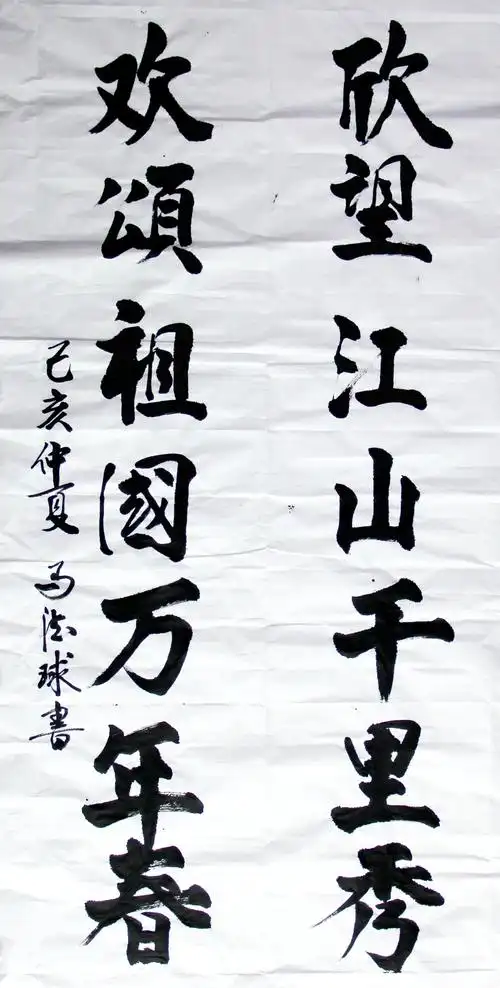 欣望江山千里秀
欢頌祖國万年春
己亥仲夏 马法球書